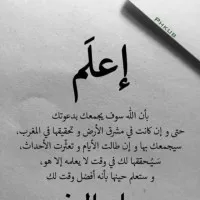 PHKUB
إعلَم
بأن الله سوف يجمعك بدعوتك
حتى و إن كانت في مشرق الأرض و تحقيقها في المغرب،
سيجمعك بها و إن طالت الأيام و تعثرت الأحداث،
سَيُحققها لك في وقت لا يعلمه إلا هو،
و ستعلم حينها بأنه أفضل وقت لك